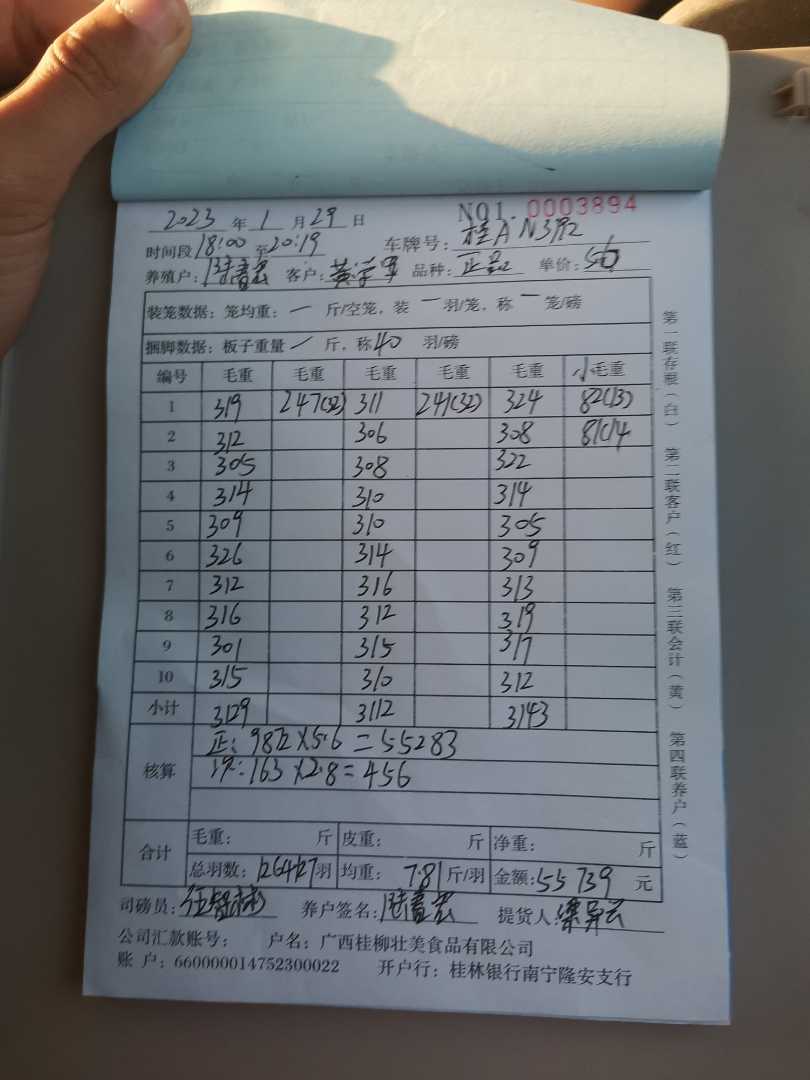 NO1. 0003894
2023 年 1 月 29 日
时间段 18:00 至 20:19 车牌号: 桂A·N3
养殖户: 客户: 黄 品种: 正品 单价: 5.6
装笼数据: 笼均重: 一 斤/空笼, 装 一 羽/笼, 称 一 笼/磅
捆脚数据: 板子重量 / 斤, 称 40 羽/磅
编号 毛重 毛重 毛重 毛重 毛重 小毛重
1 319 247(32) 311 241(32) 324 82(13)
2 312 306 308 81(14
3 305 308 322
4 314 310 314
5 309 310 305
6 326 314 309
7 312 316 313
8 316 312 319
9 301 315 317
10 315 310 312
小计 3129 3112 3143
核算
正: 9872×5.6=55283
163×2.8=456
合计
毛重: 斤 皮重: 斤 净重: 斤
总羽数: 羽 均重: 7.81 斤/羽 金额: 55739 元
司磅员: 养户签名: 提货人:
公司汇款账号: 户名: 广西桂柳壮美食品有限公司
账 户: 660000014752300022 开户行: 桂林银行南宁隆安支行
第一联存根(白) 第二联客户(红) 第三联会计(黄) 第四联养户(蓝)